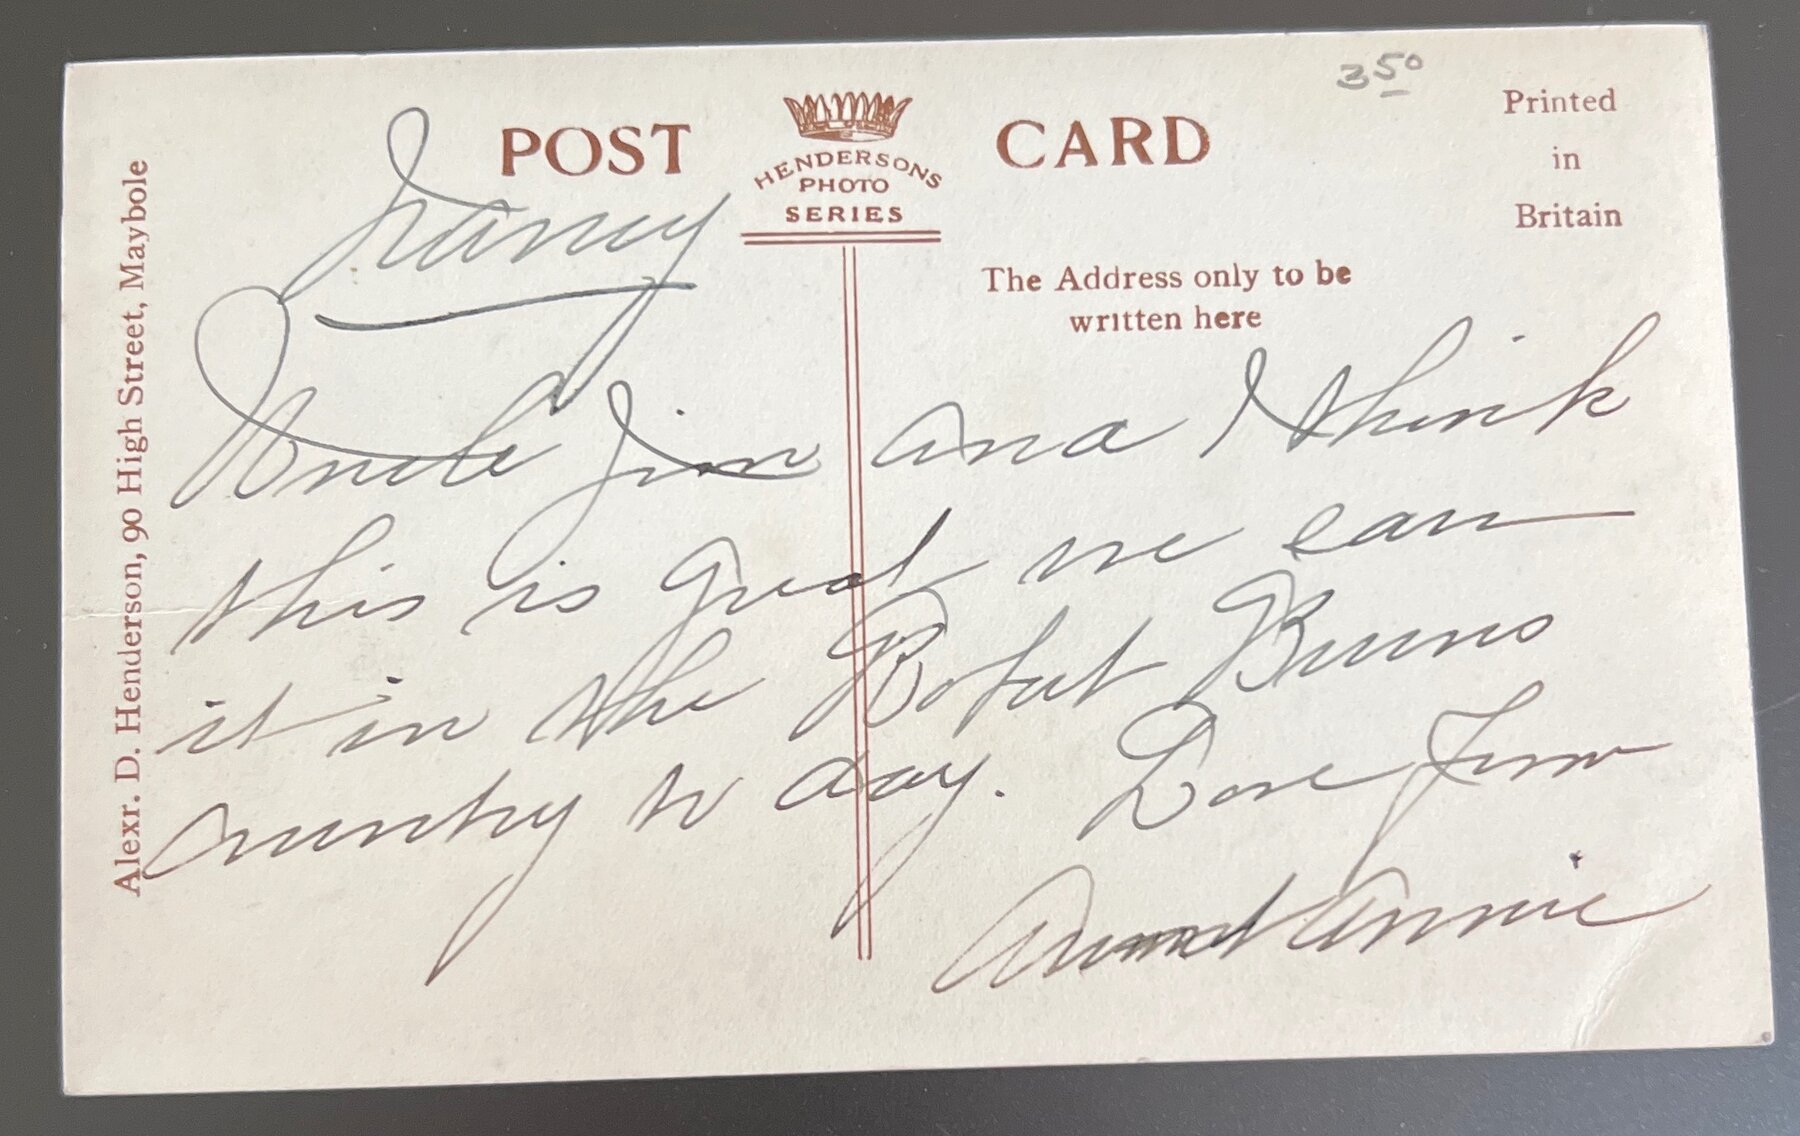 POST CARD
HENDERSONS
PHOTO
SERIES
350
Printed
in
Britain
The Address only to be
written here
Alexr. D. Henderson, 90 High Street, Maybole
Nancy
Uncle Jim and I think
this is great we are
it in the Robert Burns
country to day. Love from
Aunt Annie